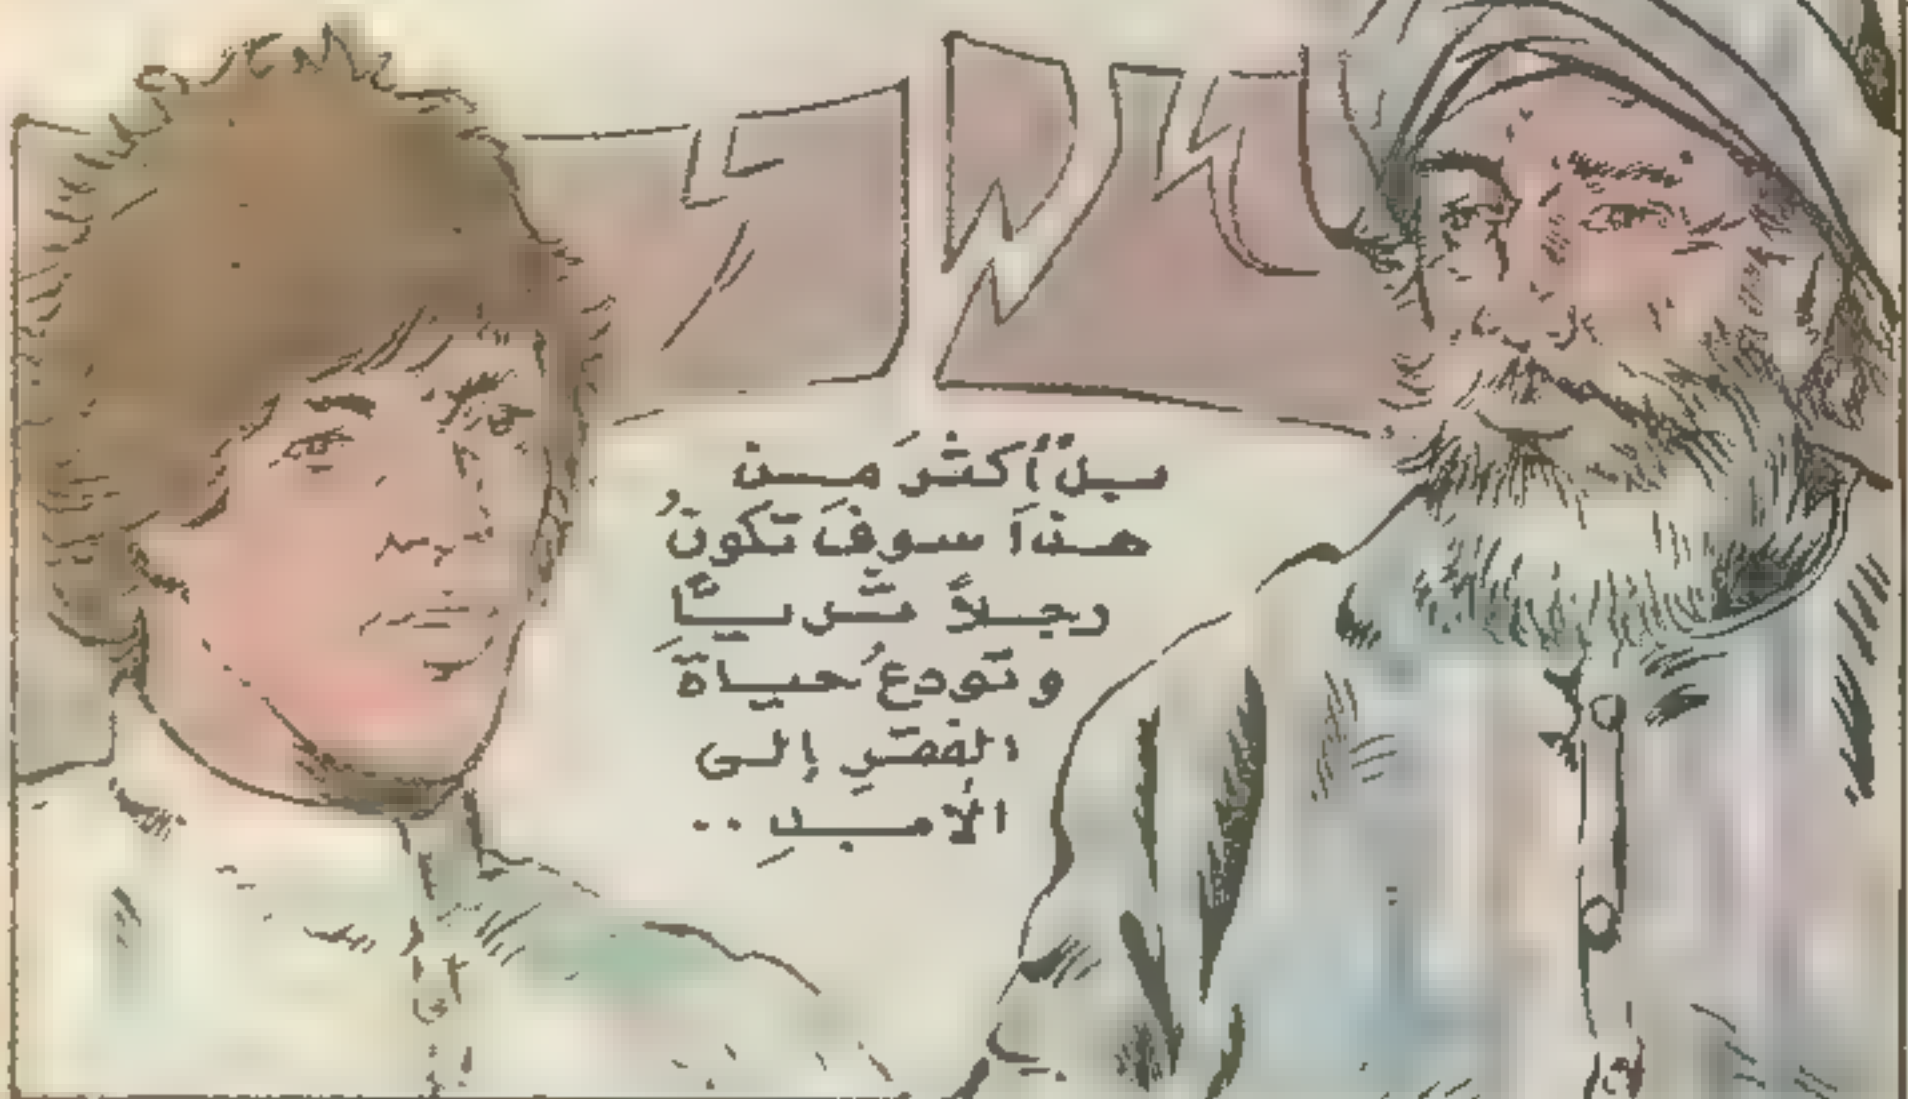 بلْ أكثَرَ مِنْ
هَذَا سوفَ تكونُ
رجلاً ثَريًّا
و تودعُ حياةَ
الفقرِ إلى
الأبدِ ..